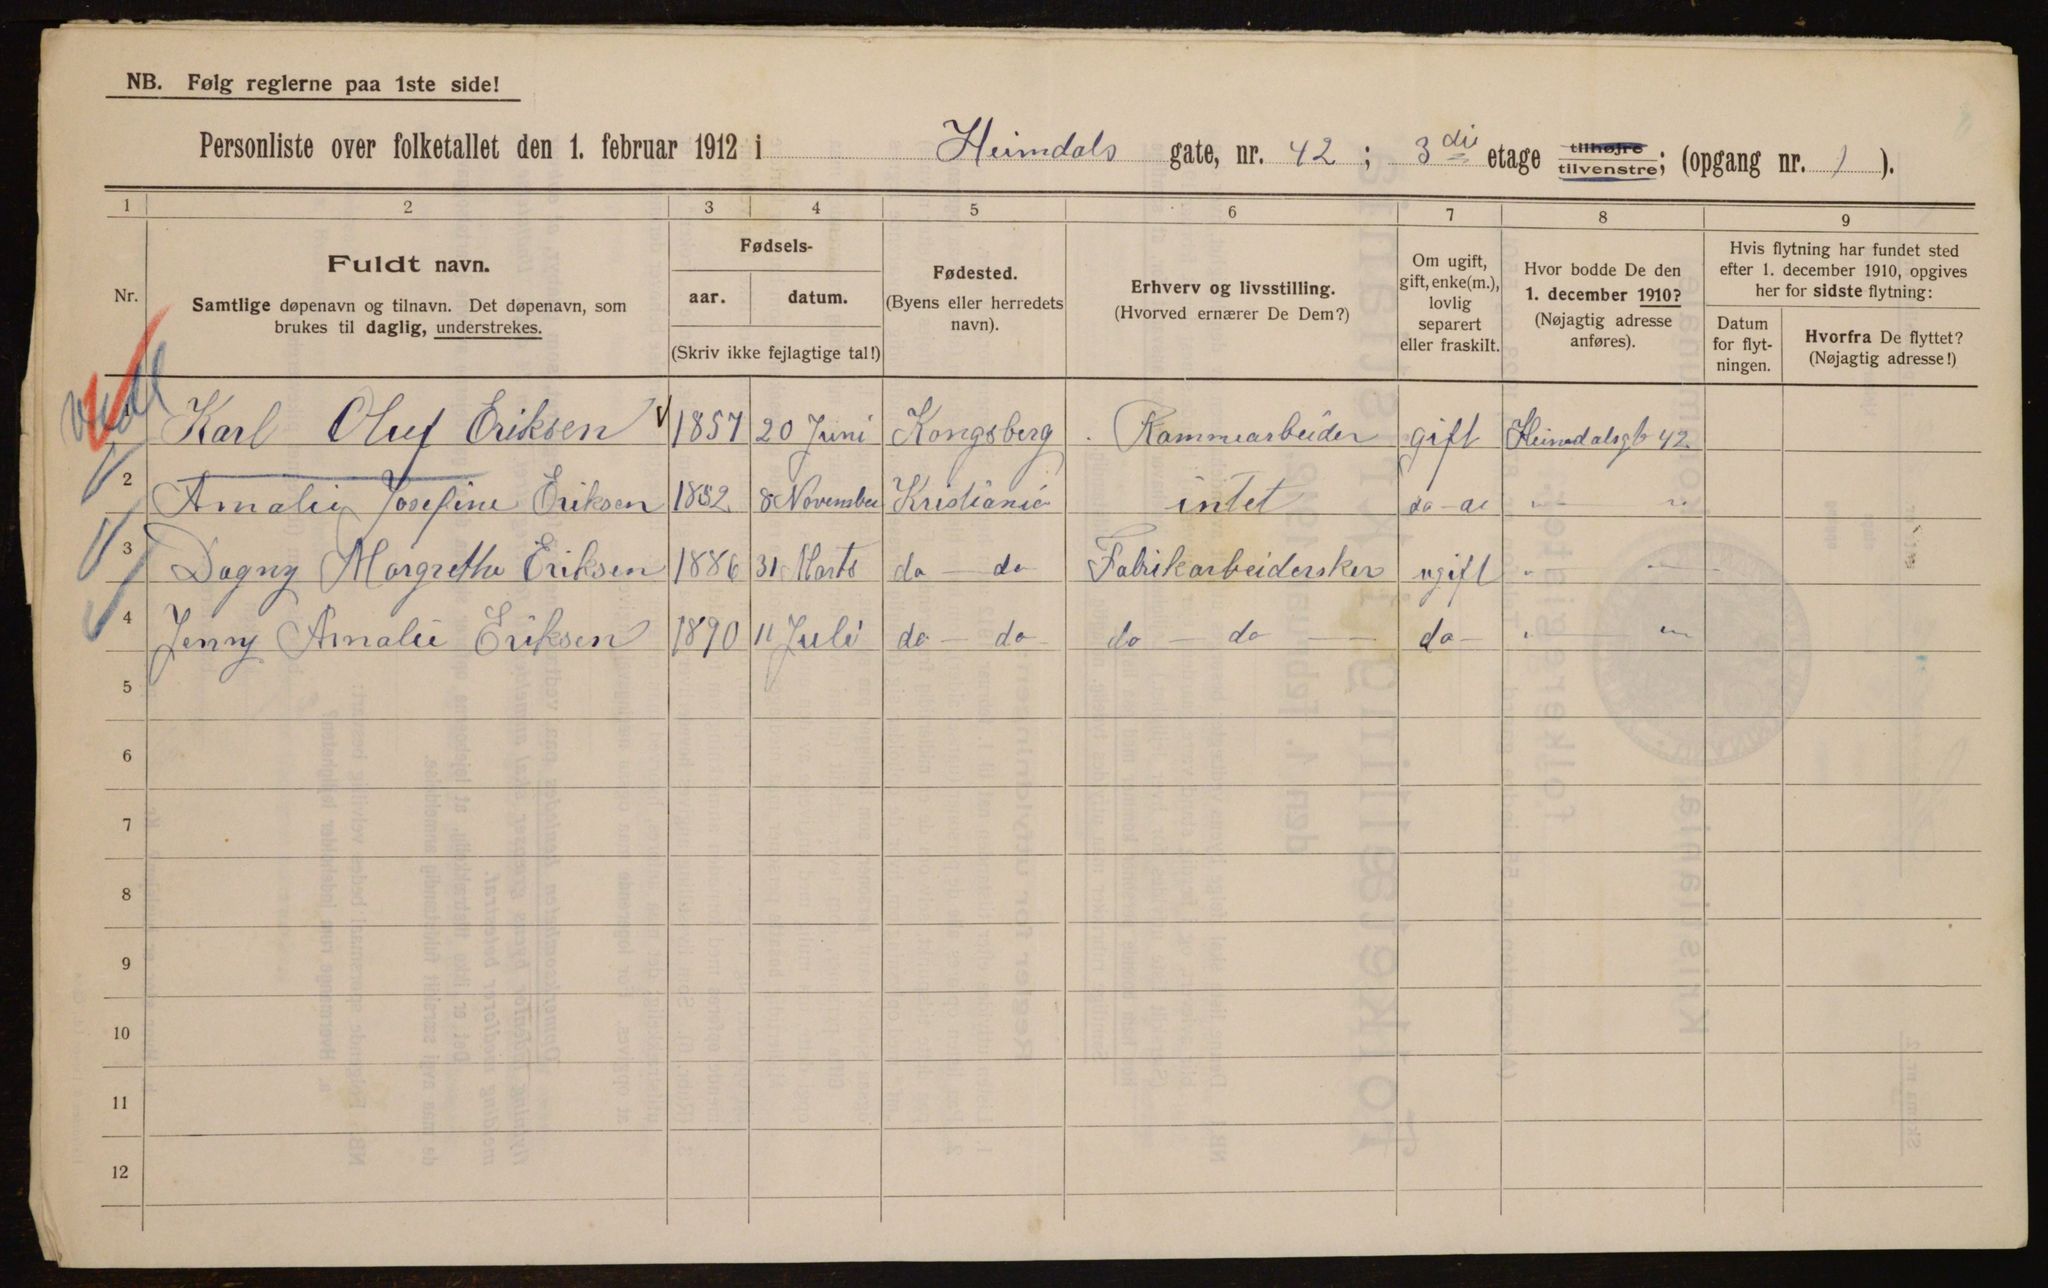 NB. Følg reglerne paa 1ste side!
Personliste over folketallet den 1. februar 1912 i Heimdals gate, nr. 42 ; 3 die etage tilhøjre tilvenstre; (opgang nr. 1 ).
1 2 3 4 5 6 7 8 9
Nr.
Fuldt navn.
Samtlige døpenavn og tilnavn. Det døpenavn, som
brukes til daglig, understrekes.
Fødsels-
aar. datum.
(Skriv ikke fejlagtige tal!)
Fødested.
(Byens eller herredets
navn).
Erhverv og livsstilling.
(Hvorved ernærer De Dem?)
Om ugift,
gift, enke(m.),
lovlig
separert
eller fraskilt.
Hvor bodde De den
1. december 1910?
(Nøjagtig adresse
anføres).
Hvis flytning har fundet sted
efter 1. december 1910, opgives
her for sidste flytning:
Datum
for flyt-
ningen.
Hvorfra De flyttet?
(Nøjagtig adresse!)
1 Karl Oluf Eriksen 1857 20 Juni Kongsberg Kammearbeider gift Heimdalsgt 42
2 Amalie Josefine Eriksen 1852 8 November Kristiania intet do - do " "
3 Dagny Margrethe Eriksen 1886 31 Marts do - do Fabrikarbeidersker ugift " "
4 Jenny Amalie Eriksen 1890 11 Juli do - do do - do do - " "
5
6
7
8
9
10
11
12